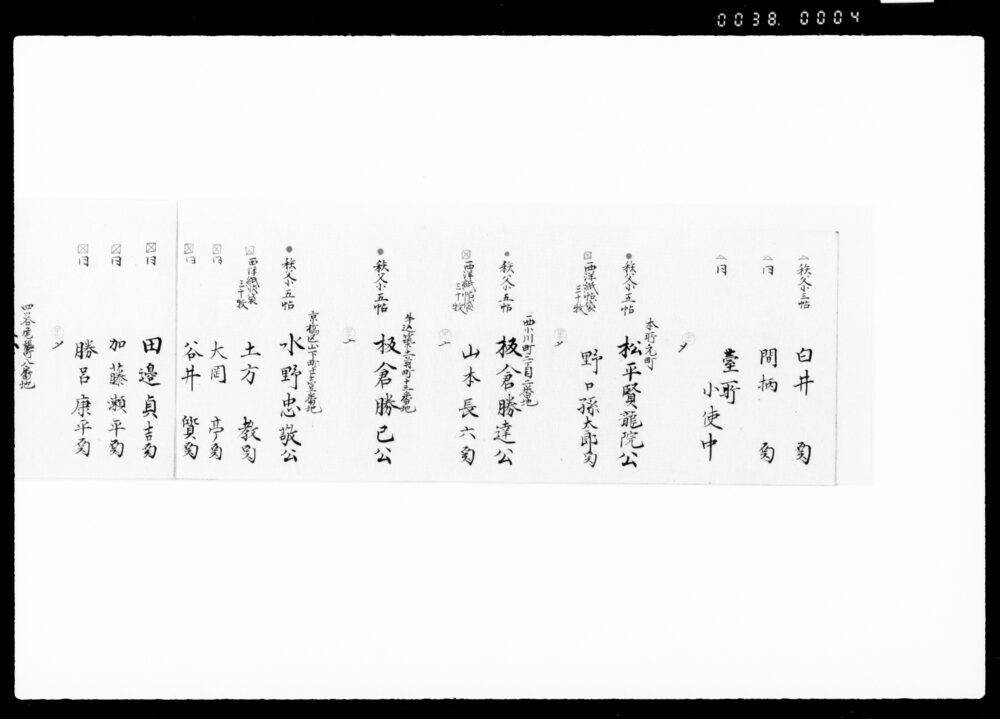 0038. 0004
△ 秩父小三帖
臼井 殿
△ 同
間柄 殿
△ 同
臺所
小使中
本所元町
● 秩父小五帖
松平賢龍院公
西洋紙帖袋
三十枚
野口孫太郎殿
西小川町二丁目二番地
● 秩父小五帖
板倉勝達公
西洋紙帖袋
三十枚
山本長六殿
牛込築土前町十三番地
● 秩父小五帖
板倉勝己公
京橋区山下町十三番地
● 秩父小五帖
水野忠敬公
西洋紙帖袋
三十枚
土方 教殿
同
大岡 亭殿
同
谷井 貨殿
同
田邉貞吉殿
同
加藤瀬平殿
同
勝呂康平殿